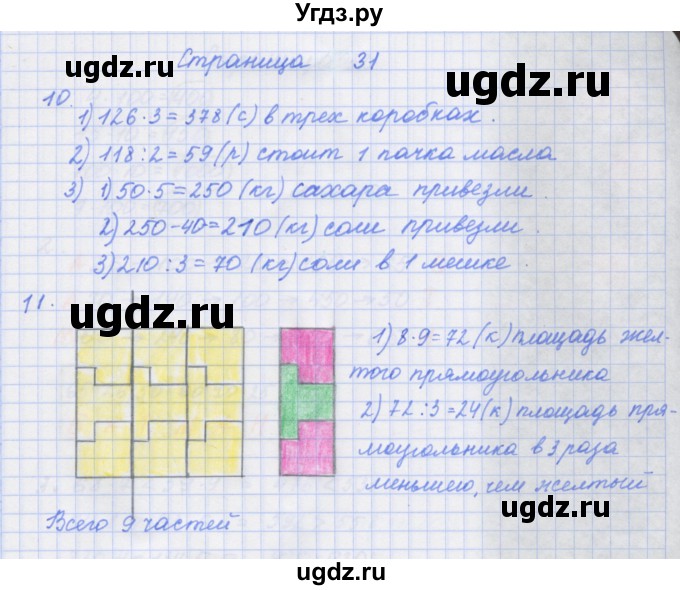 Угдз.ру
Страница 31
ugdz.ru ugdz.ru
10.
1) 126·3=378(с) в трех коробках.
2) 118:2=59(р) стоит 1 пачка масла
3) 1) 50·5=250(кг) сахара привезли.
2) 250-40=210(кг) соли привезли.
3) 210:3=70(кг) соли в 1 мешке.
11.
ugdz.ru ugdz.ru
1) 8·9=72(к) площадь жел-
того прямоугольника
2) 72:3=24(к) площадь пря-
моугольника в 3 раза
меньшего, чем желтый
Всего 9 частей
ugdz.ru ugdz.ru
ugdz.ru